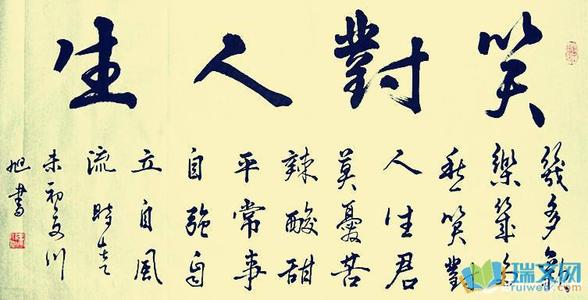 笑對人生
幾多歡
樂幾多
愁笑對
人生君
莫憂苦
辣酸甜
平常事
自強自
立自風
流時在乙
未初夏川
旭書
瑞文网